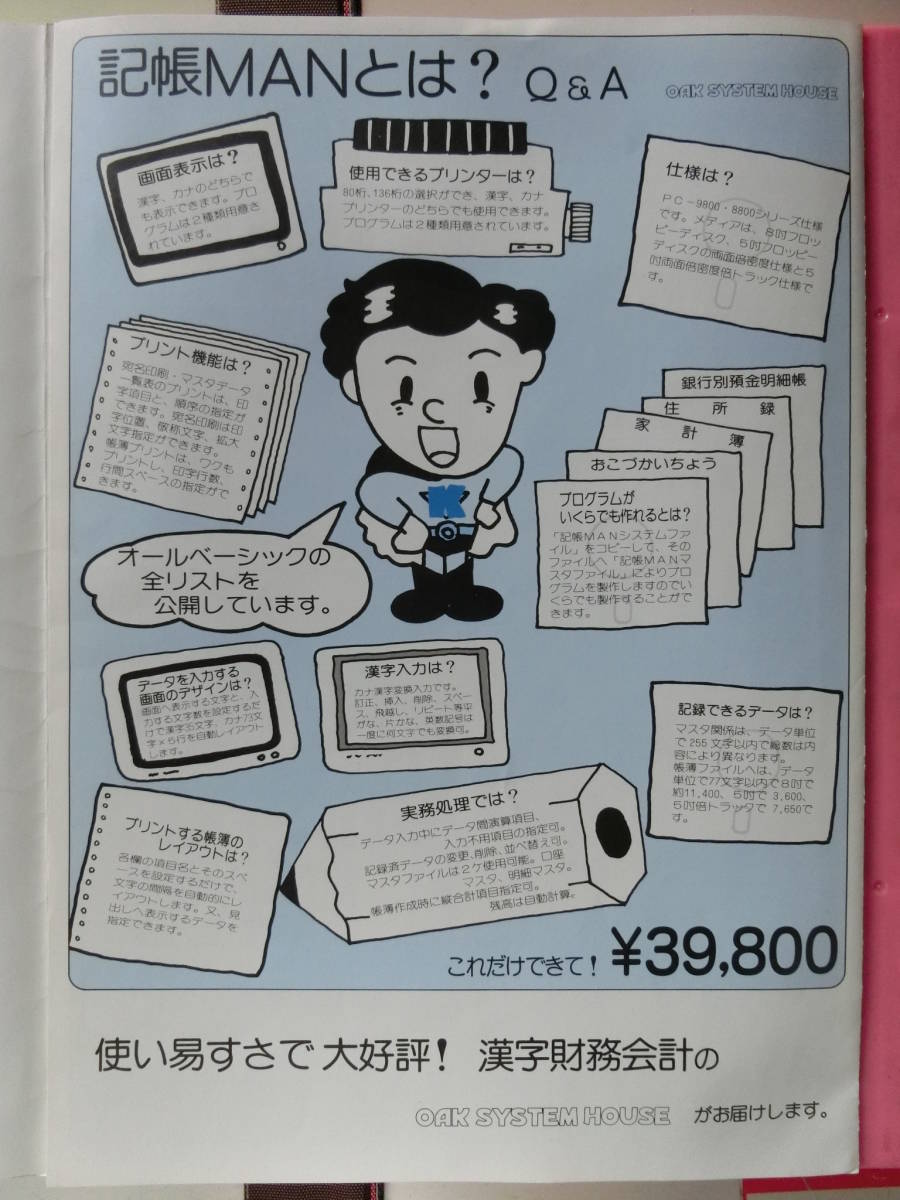 記帳MANとは? Q&A
OAK SYSTEM HOUSE
画面表示は?
漢字、カナのどちらで
も表示できます。プロ
グラムは2種類用意さ
れています。
使用できるプリンターは?
80桁、136桁の選択ができ、漢字、カナ
プリンターのどちらでも使用できます。
プログラムは2種類用意されています。
仕様は?
PC-9800・8800シリーズ仕様
です。メディアは、8吋フロッ
ピーディスク、5吋フロッピー
ディスクの両面倍密度仕様と5
吋両面倍密度倍トラック仕様で
す。
プリント機能は?
宛名印刷・マスタデータ
一覧表のプリントは、印
字項目と、順序の指定が
できます。宛名印刷は印
字位置、敬称文字、拡大
文字指定ができます。
帳簿プリントは、ワクも
プリントし、印字行数、
行間スペースの指定がで
きます。
銀行別預金明細帳
住所録
家計簿
おこづかいちょう
プログラムが
いくらでも作れるとは?
「記帳MANシステムファ
イル」をコピーして、その
ファイルへ「記帳MANマ
スタファイル」によりプロ
グラムを製作しますのでい
くらでも製作することがで
きます。
K
オールベーシックの
全リストを
公開しています。
データを入力する
画面のデザインは?
画面へ表示する文字と、入
力する文字数を設定するだ
けで漢字35文字、カナ73文
字×5行を自動レイアウト
します。
漢字入力は?
カナ漢字変換入力です。
訂正、挿入、削除、スペー
ス、飛越し、リピート等平
がな、片かな、英数記号は
一度に何文字でも変換可。
記録できるデータは?
マスタ関係は、データ単位
で255文字以内で総数は内
容により異なります。
帳簿ファイルへは、データ
単位で77文字以内で8吋で
約11,400、5吋で3,600、
5吋倍トラックで7,650で
す。
プリントする帳簿の
レイアウトは?
各欄の項目名とそのスペ
ースを設定するだけで、
文字の間隔を自動的にレ
イアウトします。又、見
出しへ表示するデータを
指定できます。
実務処理では?
データ入力中にデータ間演算項目、
入力不用項目の指定可。
記録済データの変更、削除、並べ替え可。
マスタファイルは2ケ使用可能。口座
マスタ、明細マスタ。
帳簿作成時に縦合計項目指定可。
残高は自動計算。
これだけできて! ¥39,800
使い易すさで大好評! 漢字財務会計の
OAK SYSTEM HOUSE がお届けします。